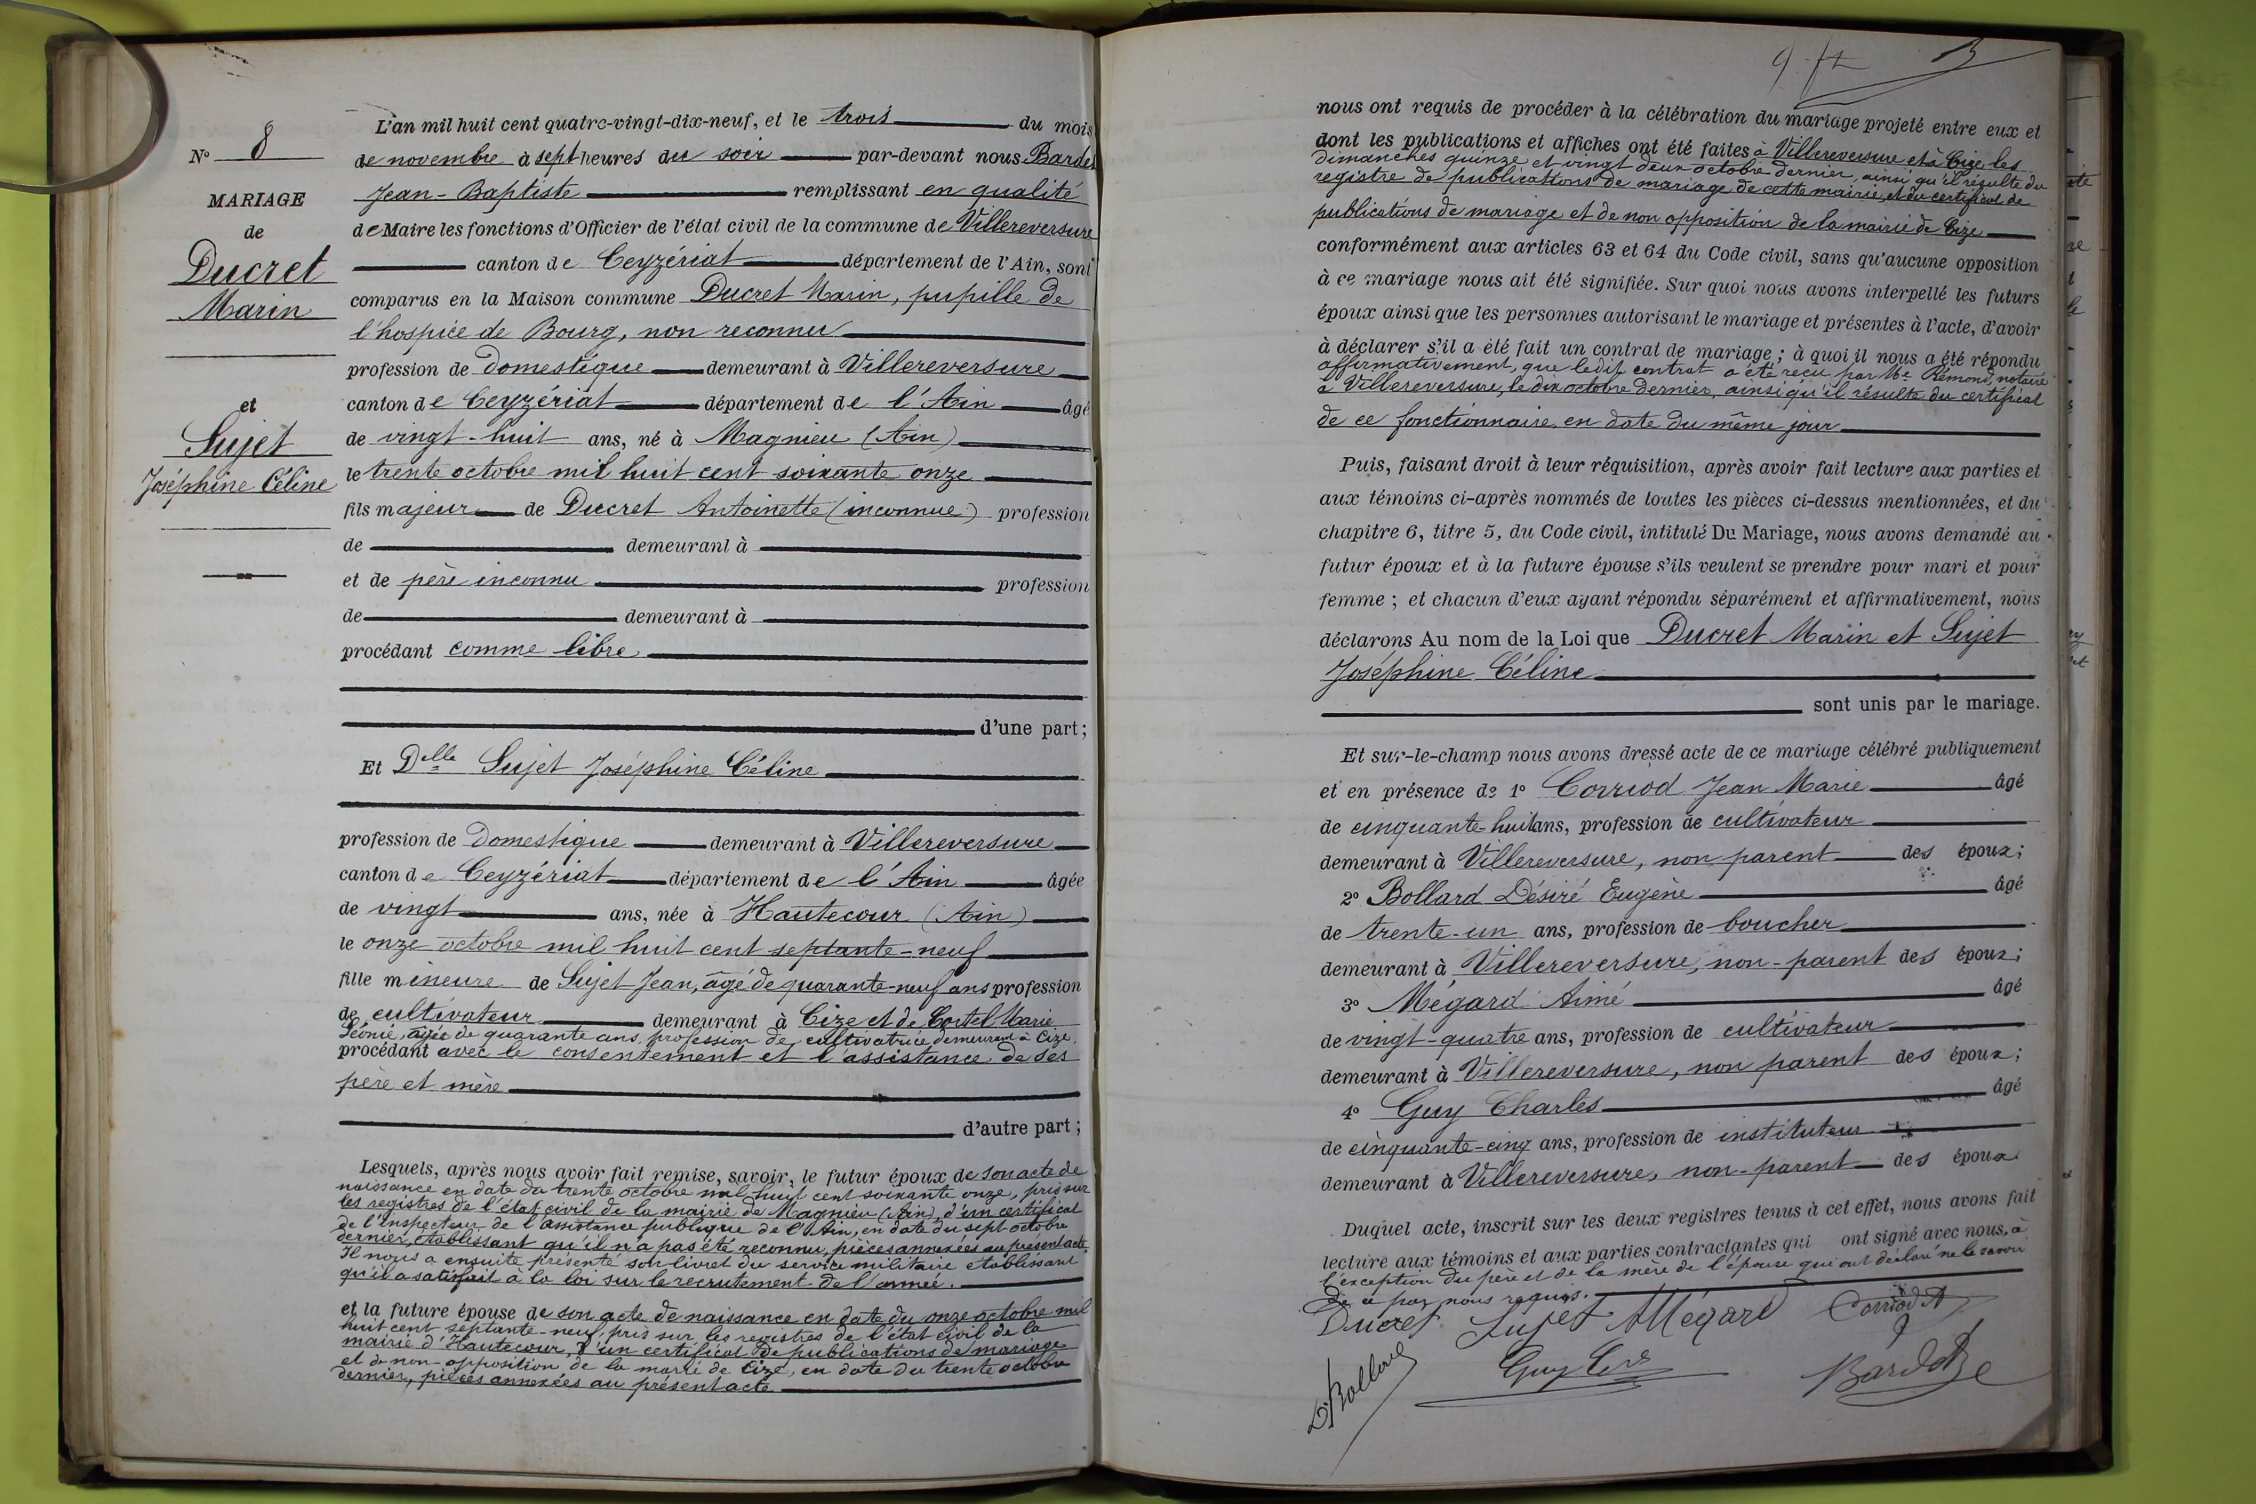 N° 8
MARIAGE
de
Ducret
Marin
et
Sujet
Joséphine Céline
L'an mil huit cent quatre-vingt-dix-neuf, et le trois du mois
de novembre à sept heures du soir par-devant nous Bardet
Jean-Baptiste remplissant en qualité
de Maire les fonctions d'Officier de l'état civil de la commune de Villereversure
canton de Ceyzériat département de l'Ain, sont
comparus en la Maison commune Ducret Marin, pupille de
l'hospice de Bourg, non reconnu
profession de domestique demeurant à Villereversure
canton de Ceyzériat département de l'Ain âgé
de vingt-huit ans, né à Magnieu (Ain)
le trente octobre mil huit cent soixante onze
fils majeur de Ducret Antoinette (inconnue) profession
de demeurant à
et de père inconnu profession
de demeurant à
procédant comme libre
d'une part;
Et Delle Sujet Joséphine Céline
profession de Domestique demeurant à Villereversure
canton de Ceyzériat département de l'Ain âgée
de vingt ans, née à Hautecour (Ain)
le onze octobre mil huit cent septante-neuf
fille mineure de Sujet Jean, âgé de quarante-neuf ans profession
de cultivateur demeurant à Cize et de Cortel Marie
Léonie, âgée de quarante ans, profession de cultivatrice demeurant à Cize,
procédant avec le consentement et l'assistance de ses
père et mère
d'autre part;
Lesquels, après nous avoir fait remise, savoir, le futur époux de son acte de
naissance en date du trente octobre mil huit cent soixante onze, pris sur
les registres de l'état civil de la mairie de Magnieu (Ain), d'un certificat
de l'inspecteur de l'assistance publique de l'Ain, en date du sept octobre
dernier, établissant qu'il n'a pas été reconnu, pièces annexées au présent acte.
Il nous a ensuite présenté son livret du service militaire établissant
qu'il a satisfait à la loi sur le recrutement de l'armée.
et la future épouse de son acte de naissance en date du onze octobre mil
huit cent septante-neuf, pris sur les registres de l'état civil de la
mairie d'Hautecour, d'un certificat de publications de mariage
et de non-opposition de la mairie de Cize, en date du trente octobre
dernier, pièces annexées au présent acte
nous ont requis de procéder à la célébration du mariage projeté entre eux et
dont les publications et affiches ont été faites à Villereversure et à Cize les
dimanches quinze et vingt deux octobre dernier, ainsi qu'il résulte du
registre de publications de mariage de cette mairie, et du certificat de
publications de mariage et de non opposition de la mairie de Cize
conformément aux articles 63 et 64 du Code civil, sans qu'aucune opposition
à ce mariage nous ait été signifiée. Sur quoi nous avons interpellé les futurs
époux ainsi que les personnes autorisant le mariage et présentes à l'acte, d'avoir
à déclarer s'il a été fait un contrat de mariage; à quoi il nous a été répondu
affirmativement, que ledit contrat a été reçu par Me Rémond, notaire
à Villereversure, le dix octobre dernier, ainsi qu'il résulte du certificat
de ce fonctionnaire en date du même jour
Puis, faisant droit à leur réquisition, après avoir fait lecture aux parties et
aux témoins ci-après nommés de toutes les pièces ci-dessus mentionnées, et du
chapitre 6, titre 5, du Code civil, intitulé Du Mariage, nous avons demandé au
futur époux et à la future épouse s'ils veulent se prendre pour mari et pour
femme; et chacun d'eux ayant répondu séparément et affirmativement, nous
déclarons Au nom de la Loi que Ducret Marin et Sujet
Joséphine Céline
sont unis par le mariage.
Et sur-le-champ nous avons dressé acte de ce mariage célébré publiquement
et en présence de 1° Corriod Jean Marie âgé
de cinquante-huit ans, profession de cultivateur
demeurant à Villereversure, non parent des époux;
2° Bollard Désiré Eugène âgé
de trente-un ans, profession de boucher
demeurant à Villereversure, non-parent des époux;
3° Mégard Aimé âgé
de vingt-quatre ans, profession de cultivateur
demeurant à Villereversure, non parent des époux;
4° Guy Charles âgé
de cinquante-cinq ans, profession de instituteur
demeurant à Villereversure, non-parent des époux
Duquel acte, inscrit sur les deux registres tenus à cet effet, nous avons fait
lecture aux témoins et aux parties contractantes qui ont signé avec nous, à
l'exception du père et de la mère de l'épouse qui ont déclaré ne le savoir
de ce par nous requis.
Ducret Sujet A Mégard Corriod
D. Bollard Guy Ch Bardet